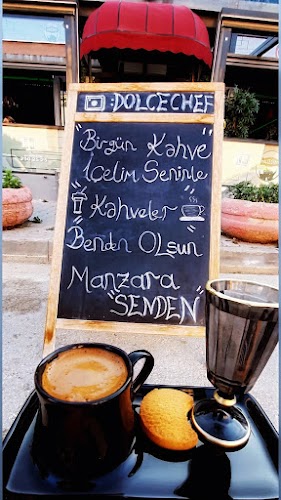 :DOLCECHEF
"Birgün Kahve
İçelim Seninle
Kahveler
Benden OLsun
Manzara
"SENDEN"